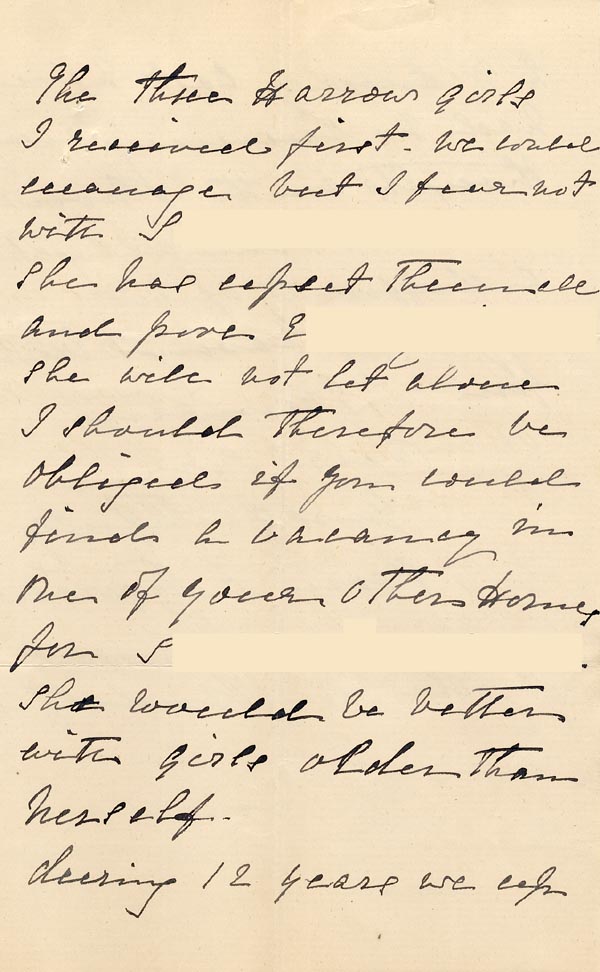 The three Harrow girls
I received first - we could
manage but I fear not
with S
she has upset them all
and poor E
she will not let alone
I should therefore be
obliged if you would
find a vacancy in
one of your other Homes
for S
she would be better
with girls older than
herself.
during 12 years we